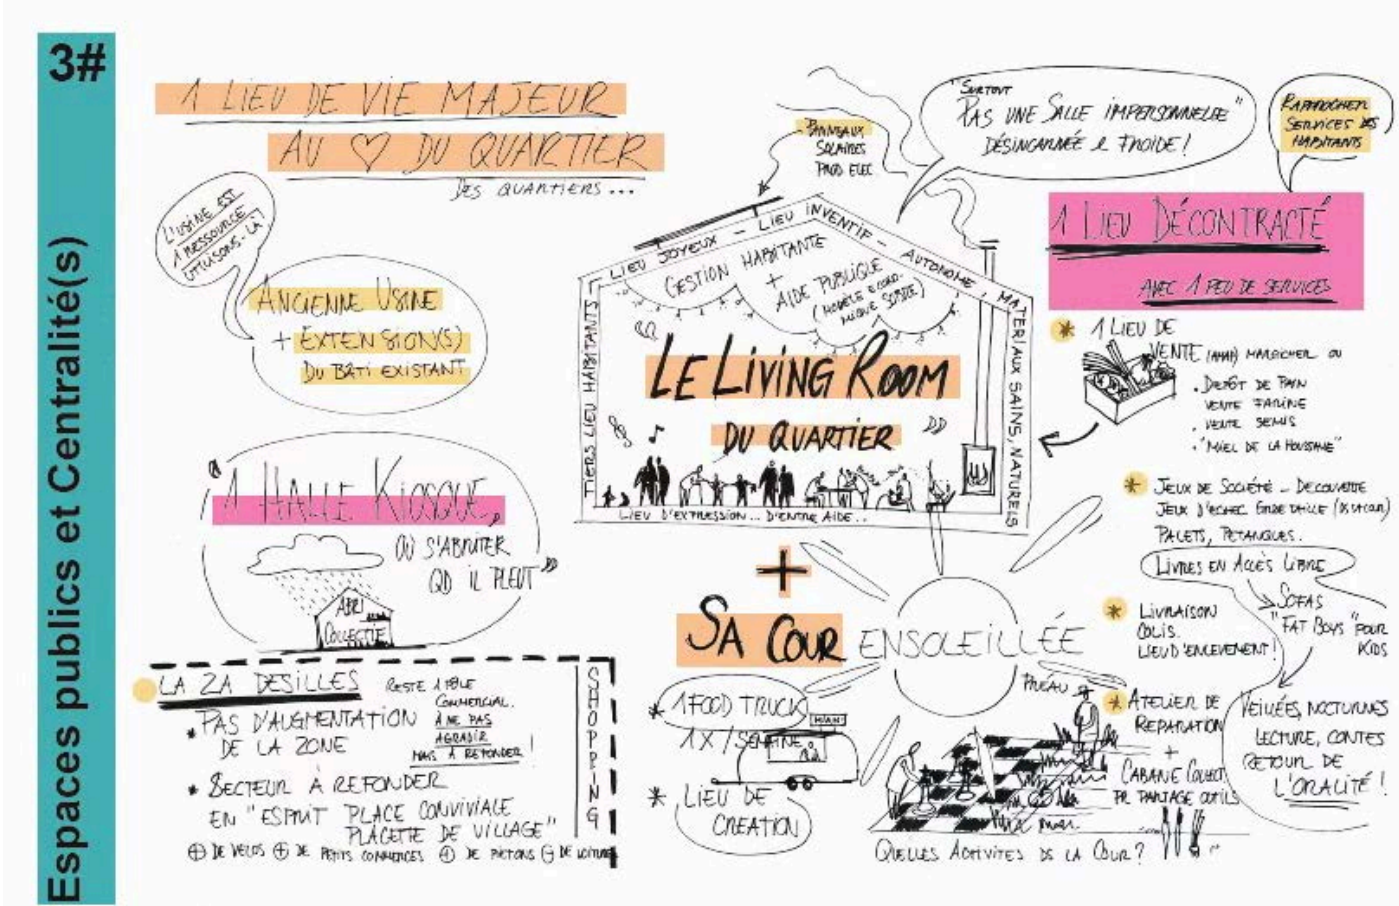 3#
Espaces publics et Centralité(s)
1 LIEU DE VIE MAJEUR
AU ♡ DU QUARTIER
DES QUARTIERS...
L'USINE EST
1 RESSOURCE
UTILISONS-LÀ!
ANCIENNE USINE
+ EXTENSION(S)
DU BÂTI EXISTANT
"1 HALLE KIOSQUE,
OÙ S'ABRITER
QD IL PLEUT"
ABRI
COLLECTIF
LA ZA DESILLES
RESTE 1 PÔLE
COMMERCIAL.
À NE PAS
AGRADIR
MAIS À REFONDER!
* PAS D'AUGMENTATION
DE LA ZONE
* SECTEUR À REFONDER
EN "ESPRIT PLACE CONVIVIALE
PLACETTE DE VILLAGE"
⊕ DE VELOS ⊕ DE PETITS COMMERCES ⊕ DE PIETONS ⊖ DE VOITURES
SHOPPING
PANNEAUX
SOLAIRES
PROD ELEC
"SURTOUT
PAS UNE SALLE IMPERSONNELLE"
DÉSINCARNÉE & FROIDE!
RAPPROCHER
SERVICES DES
HABITANTS
TIERS LIEU HABITANTS
LIEU JOYEUX - LIEU INVENTIF - AUTONOME, MATERIAUX SAINS, NATURELS
GESTION HABITANTE
+
AIDE PUBLIQUE
(MODÈLE ECONO-
MIQUE SOBRE)
"LE LIVING ROOM
DU QUARTIER"
LIEU D'EXPRESSION... D'ENTRE AIDE...
+
SA COUR ENSOLEILLÉE
* 1 FOOD TRUCK
1X/SEMAINE
MIAM!
* LIEU DE
CREATION
PRÉAU
QUELLES ACTIVITES DS LA COUR?
1 LIEU DÉCONTRACTÉ
AVEC 1 PEU DE SERVICES
* 1 LIEU DE
VENTE (AMAP) MARAICHER OU
. DEPÔT DE PAIN
VENTE FARINE
. VENTE SEMIS
. "MIEL DE LA HOUSSAYE"
* JEUX DE SOCIÉTÉ - DECOUVERTE
JEUX D'ECHEC GRDE TAILLE (DS LA COUR)
PALETS, PETANQUES.
LIVRES EN ACCÈS LIBRE
SOFAS
"FAT BOYS" POUR
KIDS
* LIVRAISON
COLIS.
LIEU D'ENLEVEMENT!
* ATELIER DE
REPARATION
+
CABANE COLLECT.
PR PARTAGE OUTILS
VEILLÉES, NOCTURNES
LECTURE, CONTES
RETOUR DE
L'ORALITÉ!